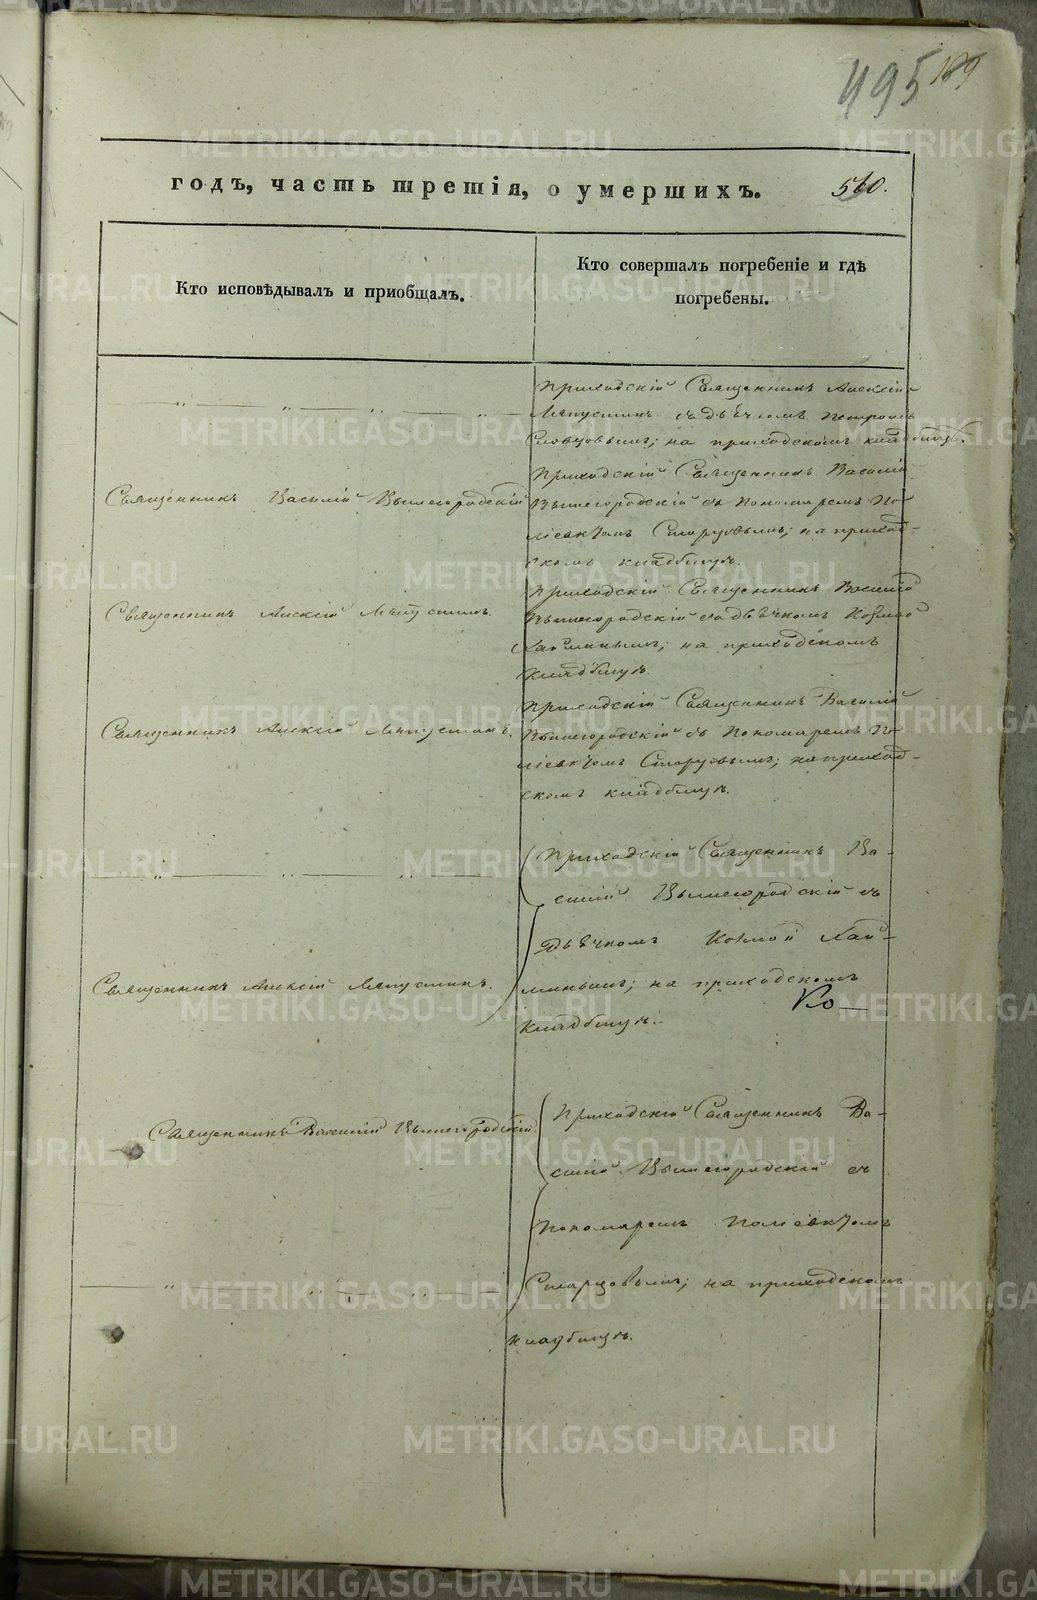 495 189
годъ, часть третія, о умершихъ. 510.
Кто исповѣдывалъ и пріобщалъ.
Кто совершалъ погребеніе и гдѣ
погребены.
Приходскій Священникъ Алексій
Ляпустинъ съ дьячкомъ Петромъ
Словцовымъ; на приходскомъ кладбищѣ.
Священникъ Василій Вышегородскій
Приходскій Священникъ Василій
Вышегородскій съ Пономаремъ По-
ліевктомъ ; на приход-
скомъ кладбищѣ.
Священникъ Алексій Ляпустинъ.
Приходскій Священникъ Василій
Вышегородскій съ дьячкомъ Козмой
Хайминымъ; на приходскомъ
кладбищѣ.
Священникъ Алексій Ляпустинъ.
Приходскій Священникъ Василій
Вышегородскій съ Пономаремъ По-
ліевктомъ ; на приход-
скомъ кладбищѣ.
Приходскій Священникъ Ва-
силій Вышегородскій съ
дьячкомъ Козмой Хай-
Священникъ Алексій Ляпустинъ.
минымъ; на приходскомъ
Ко
кладбищѣ.
Священникъ Василій Вышегородскій.
Приходскій Священникъ Ва-
силій Вышегородскій съ
Пономаремъ Поліевктомъ
; на приходскомъ
кладбищѣ.
METRIKI.GASO-URAL.RU